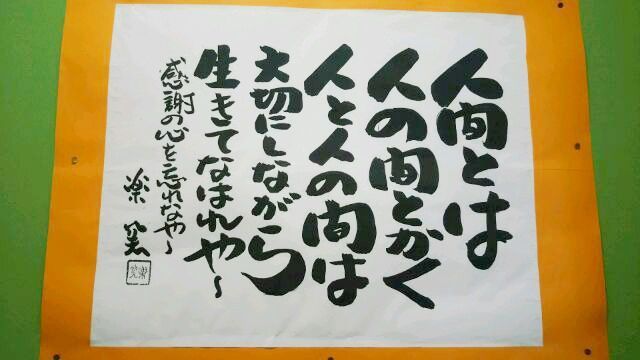 人間とは
人の間とかく
人と人の間は
大切にしながら
生きてなはれや〜
感謝の心を忘れなや〜